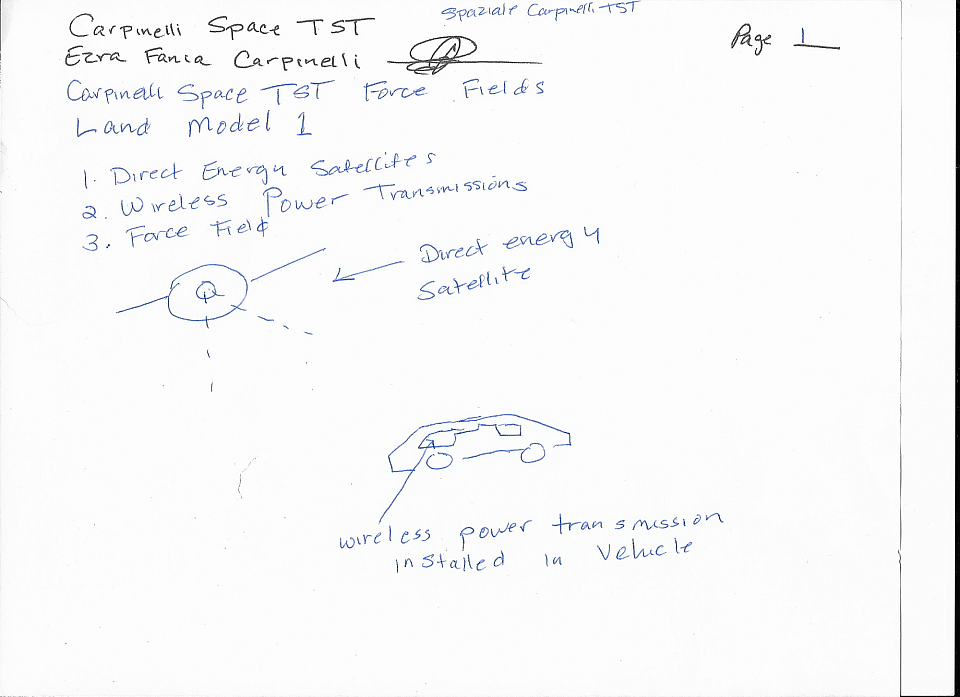 Carpinelli Space TST
Spaziale Carpinelli TST
Page 1
Ezra Fania Carpinelli
Carpinelli Space TST Force Fields
Land Model 1
1. Direct Energy Satellites
2. Wireless Power Transmissions
3. Force Field
Direct energy
Satellite
wireless power transmission
installed in Vehicle